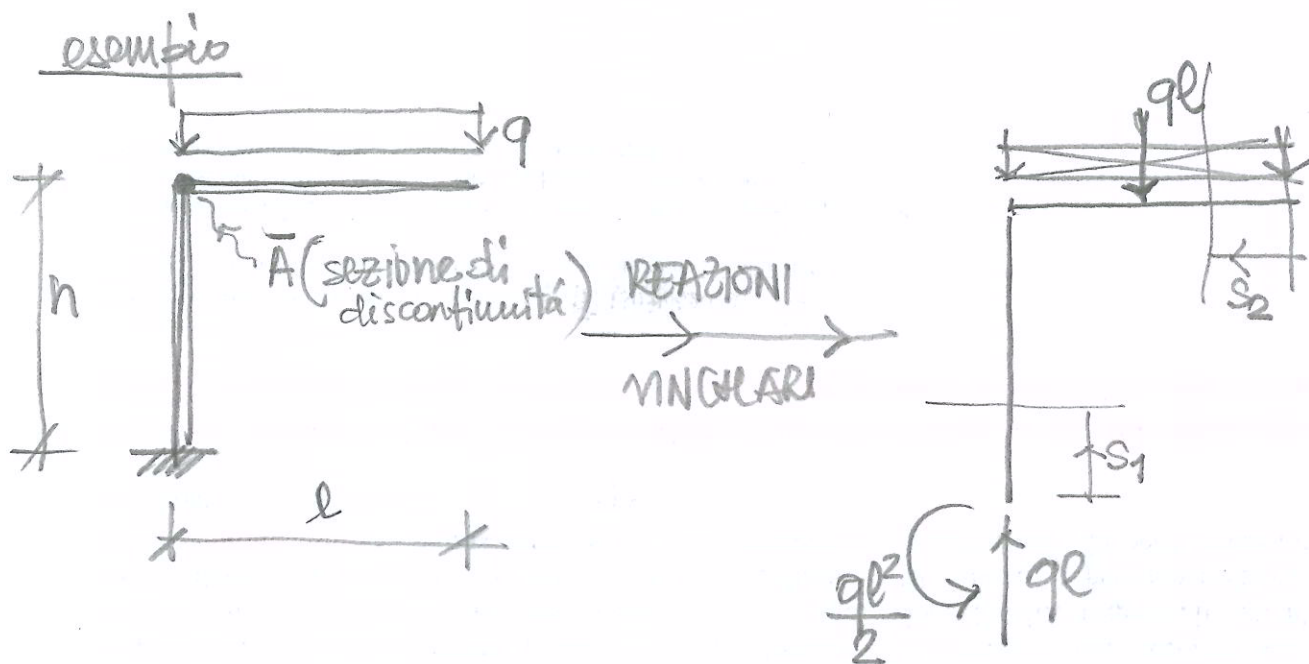 esempio
q
h
Ā (sezione di
discontinuitá)
l
REAZIONI
VINCOLARI
ql
S2
S1
ql²
2
ql